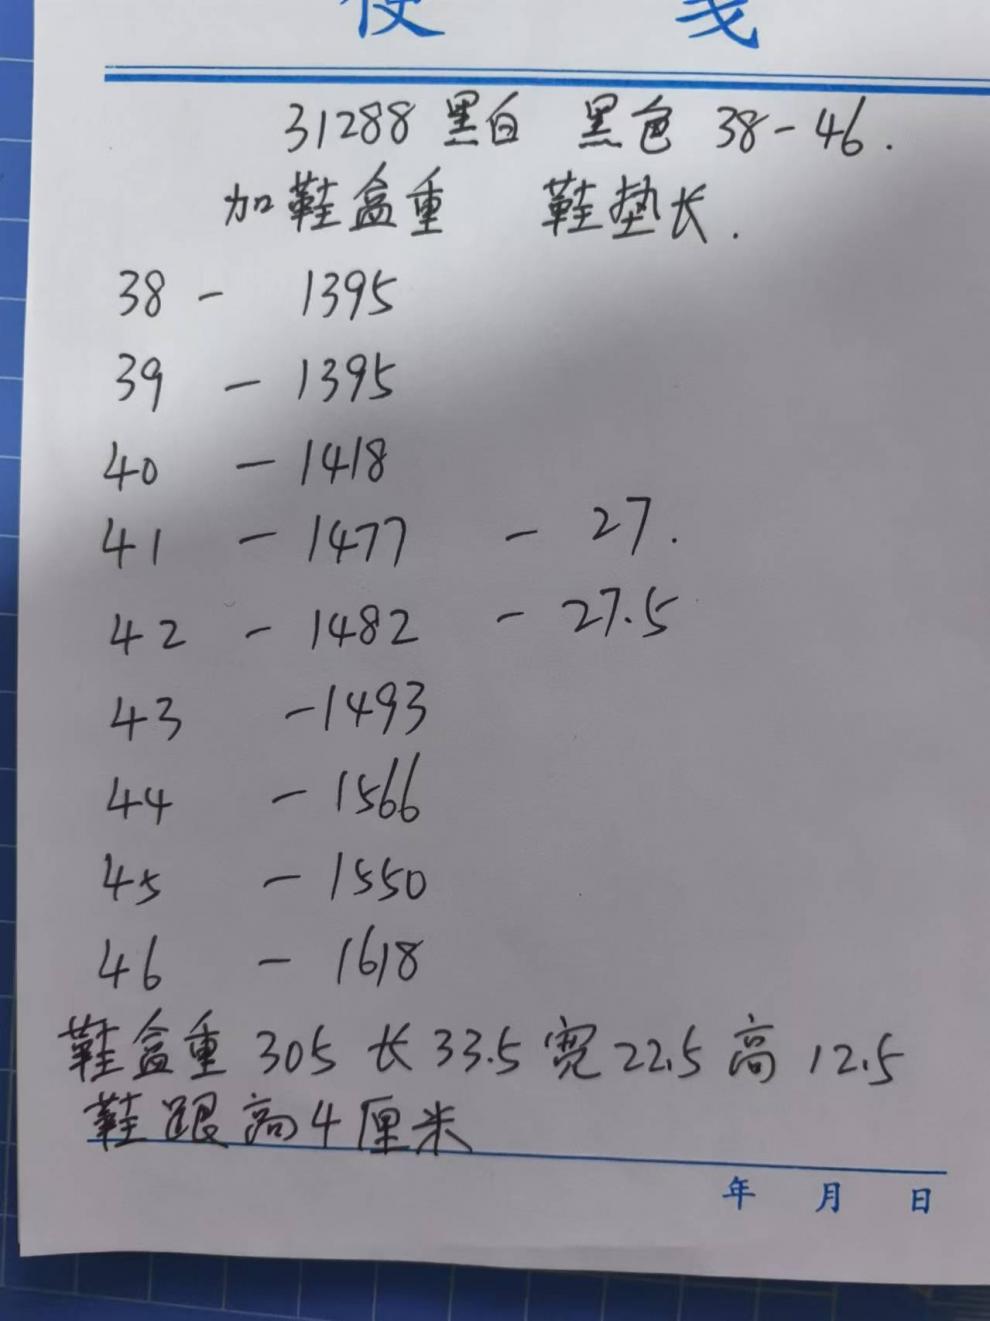 便 笺
31288 黑白 黑色 38-46.
加鞋盒重 鞋垫长.
38 - 1395
39 - 1395
40 - 1418
41 - 1477 - 27.
42 - 1482 - 27.5
43 - 1493
44 - 1566
45 - 1550
46 - 1618
鞋盒重 305 长 33.5 宽 22.5 高 12.5
鞋跟高4厘米
年 月 日